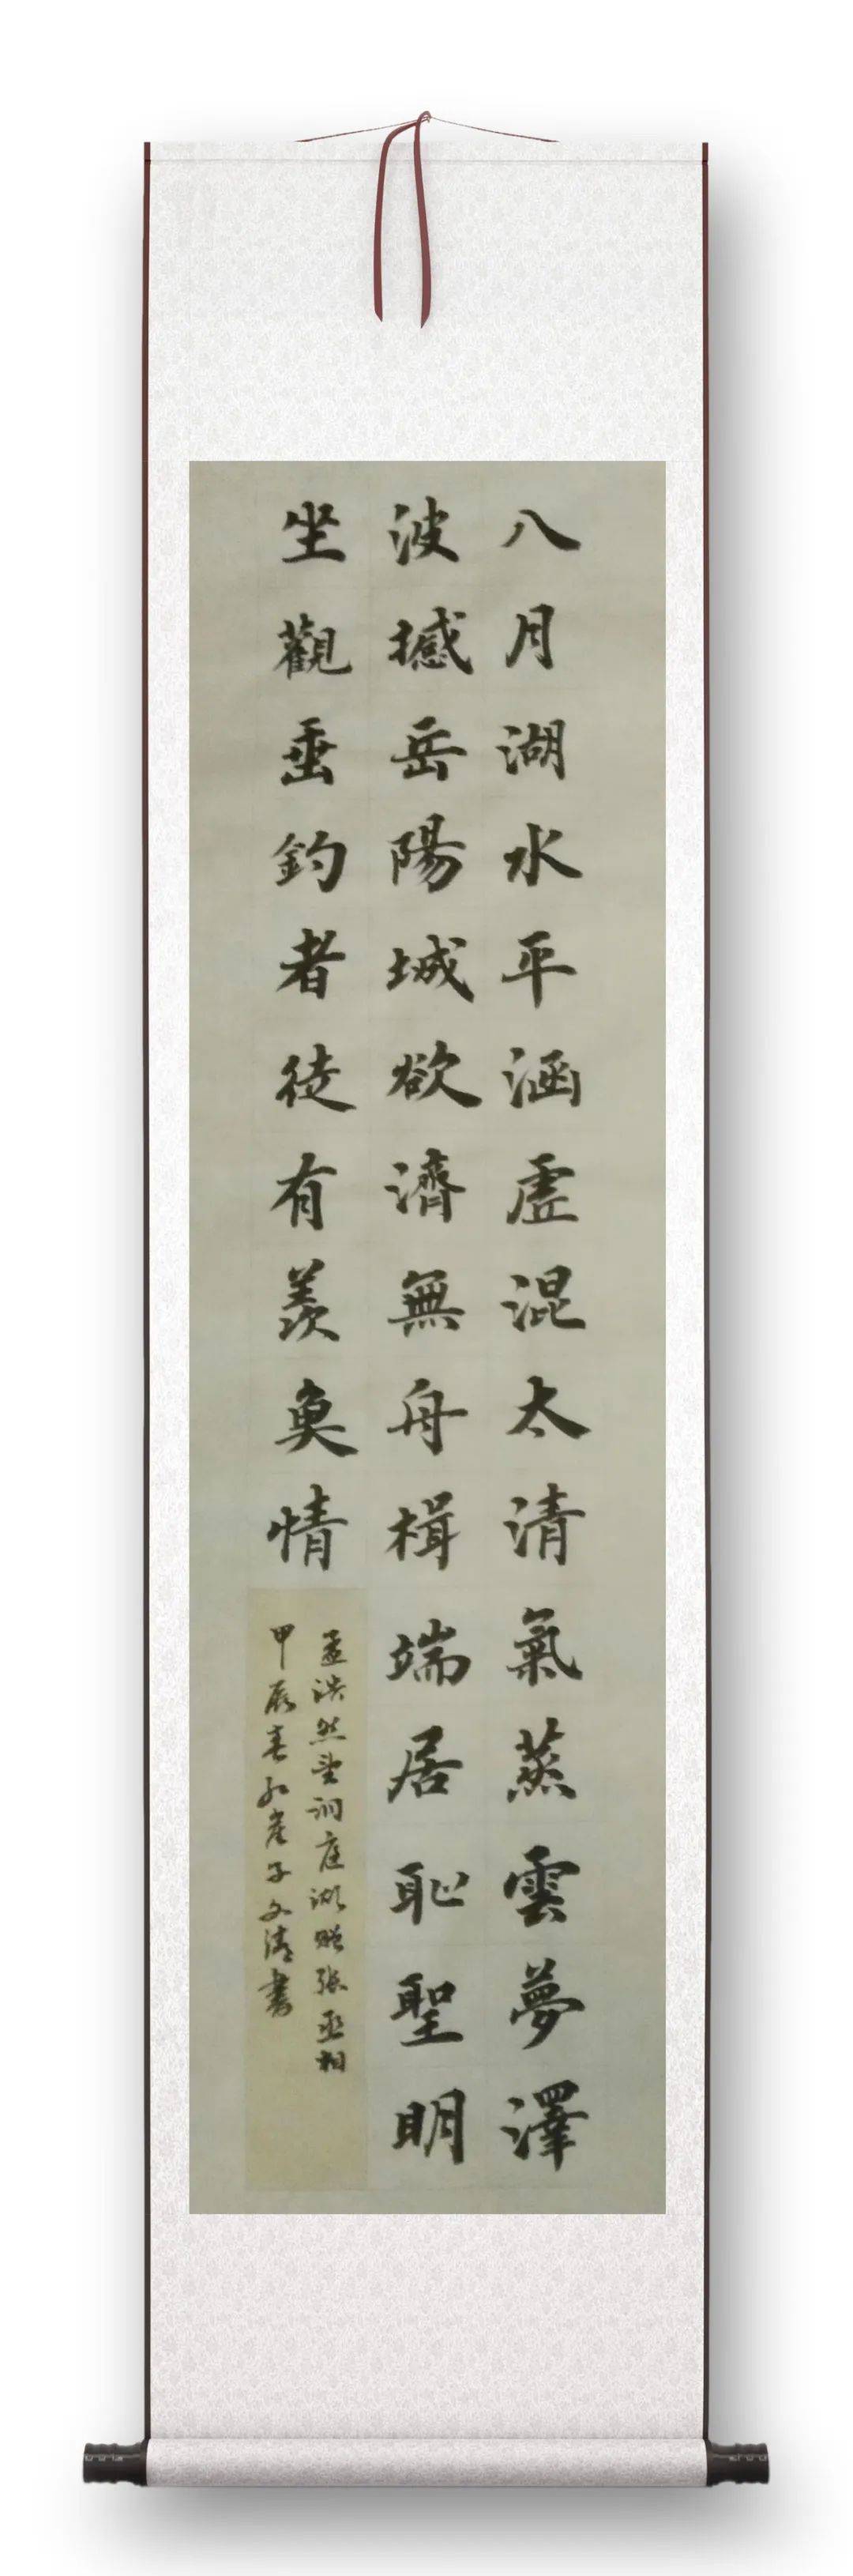 八月湖水平涵虛混太清氣蒸雲夢澤
波撼岳陽城欲濟無舟楫端居恥聖明
坐觀垂釣者徒有羨魚情
孟浩然望洞庭湖贈張丞相
甲辰春紅崖子文清書